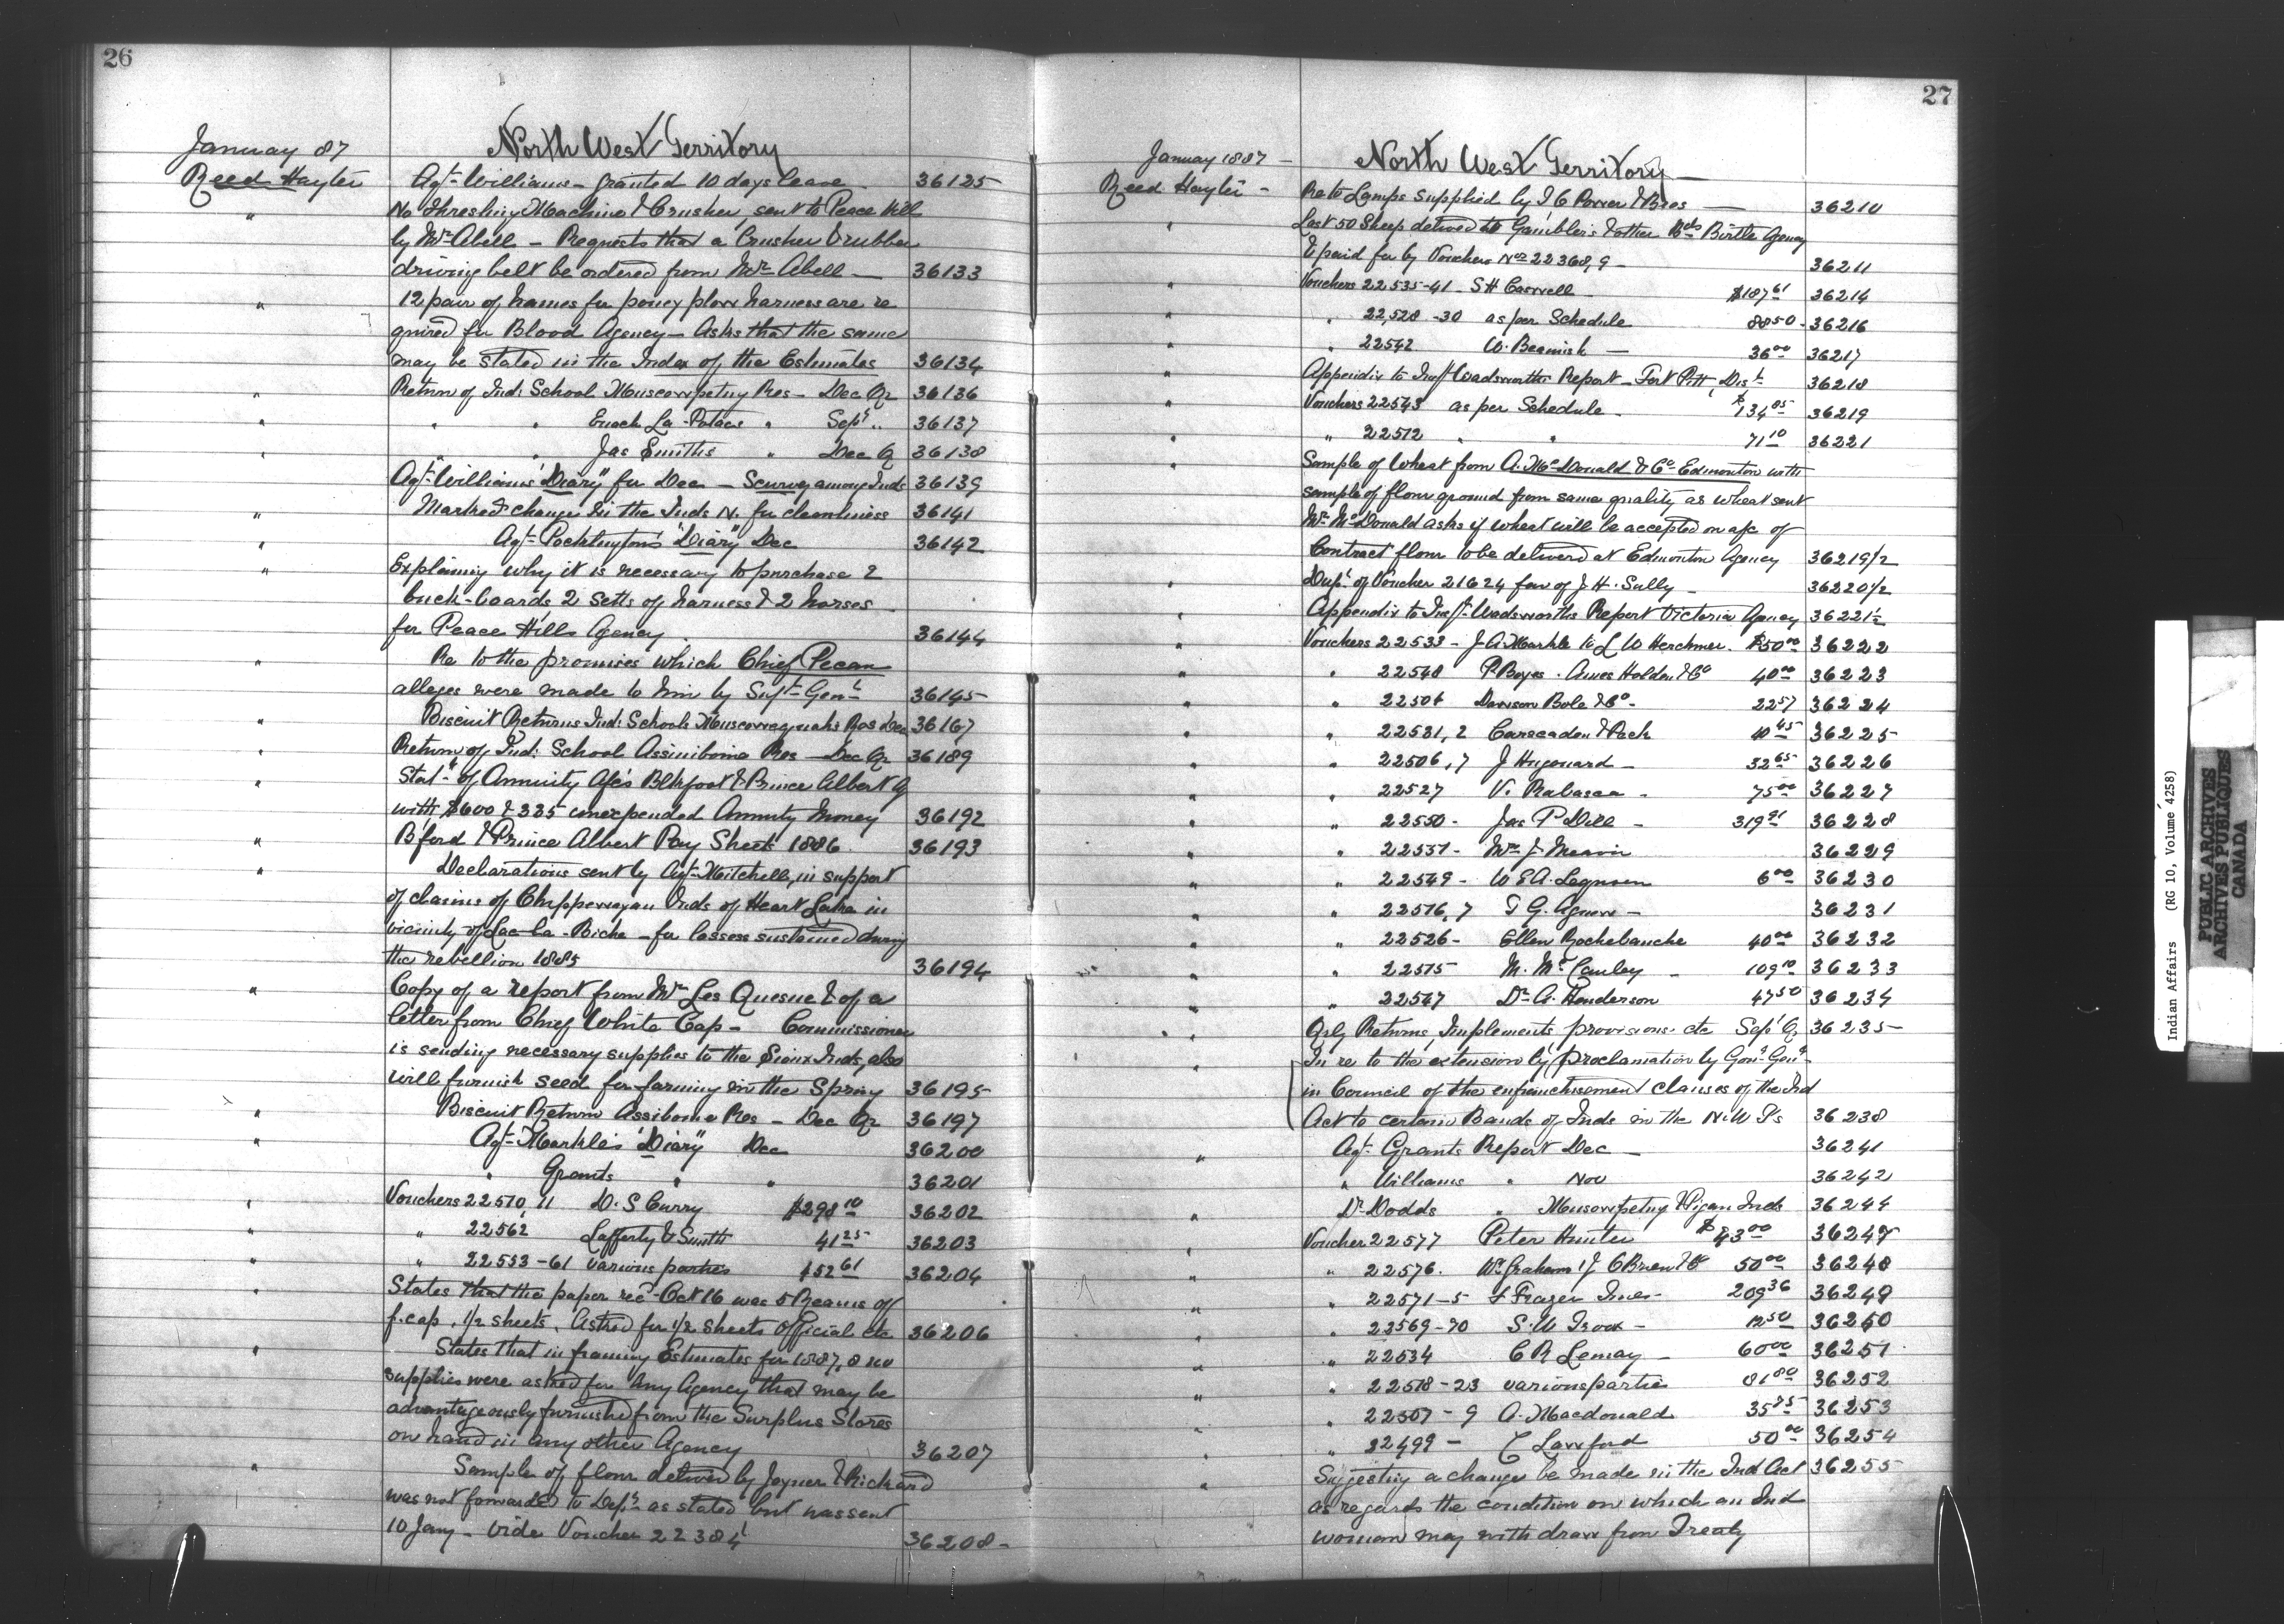 26
January 87
North West Territory
Reed Hayter Agt Williams - granted 10 days leave 36125
" No Threshing Machine & Crusher, sent to Peace Hill
by Mr Abell - Requests that a Crusher & rubber
driving belt be ordered from Mr Abell - 36133
" 12 pair of hames for poney plow harness are re
quired for Blood Agency - Asks that the same
may be stated in the Index of the Estimates 36134
" Return of Ind: School Muscowpetung Res - Dec Qr 36136
" " " Enoch La-Potac's " Sept " 36137
" " " Jas Smiths " Dec Q 36138
Agt Williams "Diary" for Dec - Scurvy among Inds 36139
" Marked change in the Inds N. for cleanliness 36141
" Agt Pocklington's "Diary" Dec 36142
" Explaining why it is necessary to purchase 2
buck-boards 2 setts of harness & 2 horses
for Peace Hills Agency 36144
" Re to the promises which Chief Pecan
alleges were made to him by Supt Genl 36145
" Biscuit Returns Ind: School Res Dec 36167
" Return of Ind: School Assiniboine Res - Dec Qr 36189
" Stat of Annuity A/cs Blkfoot & Prince Albert Ag
with $600 & 335 unexpended Annuity Money 36192
" Bford & Prince Albert Pay Sheets 1886 36193
" Declarations sent by Agt Mitchell, in support
of claims of Chippewayan Inds of Heart Lake in
vicinity of Lac-la-Biche - for losses sustained during
the rebellion 1885 36194
" Copy of a report from Mr Les Quesne & of a
letter from Chief White Cap - Commissioner
is sending necessary supplies to the Sioux Inds, also
will furnish seed for farming in the Spring 36195
" Biscuit Return Assiboine Res - Dec Qr 36197
" Agt Markle's "Diary" Dec 36200
" Grants " " 36201
" Vouchers 22510, 11 D. S Curry $298 10 36202
" " 22562 Lafferty & Smith 41 25 36203
" " 22553-61 various parties 152 61 36204
" States that the paper recd Oct 16 was 5 Reams of
f.cap, 1/2 sheets. Asked for 1/2 sheets official etc 36206
" States that in framing Estimates for 1887,8 no
supplies were asked for any Agency that may be
advantageously furnished from the Surplus Stores
on hand in any other Agency 36207
" Sample of flour delivered by Joyner & Rickard
was not forwarded to Dept as stated but was sent
10 Jany - vide Voucher 22384 36208-
27
January 1887 -
North West Territory -
Reed Hayter - Re to Lamps supplied by I G Power & Bros - 36210
" Last 50 Sheep delivered to Gamblers & other Bds Birtle Agency
& paid for by Vouchers Nos 22368,9 - 36211
" Vouchers 22535-41 S H Caswell $187 61 36214
" " 22,528-30 as per Schedule 88 50 36216
" " 22542 W. Beamish - 36 00 36217
" Appendix to Insp Wadsworths Report - Fort Pitt, Dist 36218
" Vouchers 22543 as per Schedule - $134 85 36219
" " 22512 " " 71 10 36221
" Sample of Wheat from A. McDonald & Co Edmonton with
sample of flour ground from same quality as wheat sent
Mr McDonald asks if wheat will be accepted on a/c of
Contract flour to be delivered at Edmonton Agency 36219 1/2
" Dup of Voucher 21624 fav of J. H. Sully - 36220 1/2
" Appendix to Insp Wadsworths Report Victoria Agency 36221 1/2
" Vouchers 22533 - J. A. Markle to L W Herchmer $50 00 36222
" " 22548 P. Boyes. Ames Holden & Co 40 00 36223
" " 22504 Dawson Bole & Co - 22 57 36224
" " 22531,2 Carscaden & Peck 10 45 36225
" " 22506,7 J Hugonard - 32 65 36226
" " 22527 V. Rabasca - 75 00 36227
" " 22550 - Jas P Dill - 319 91 36228
" " 22551 - Mr J. 36229
" " 22549 - W E A. 6 00 36230
" " 22516,7 T G. Agnew - 36231
" " 22526 - Ellen Rocheblanche 40 00 36232
" " 22515 M. McCauley - 109 10 36233
" " 22547 Dr A. Henderson 47 50 36234
" Qrly Returns, Implements, provisions etc Sept Q 36235
" In re to the extension by proclamation by Govr Genl
in Council of the enfranchisement clauses of the Ind
Act to certain Bands of Inds in the N.W T's 36238
" Agt Grants Report Dec - 36241
" Williams " Nov 36242
" Dr Dodds " Muscowpetung & Pigan Inds 36244
" Voucher 22577 Peter Hunter $43 00 36247
" " 22576. Wm Graham & J. O'Brien & Co 50 00 36248
" " 22571-5 L Frazer Imes - 209 36 36249
" " 22569-70 S. W Trook - 12 50 36250
" " 22534 C R Lemay - 60 00 36251
" " 22518-23 various parties 81 80 36252
" " 22507-9 A. Macdonald 35 85 36253
" " 22499 - C Lawford 50 00 36254
" Suggesting a change be made in the Ind Act 36255
as regards the condition on which an Ind
woman may withdraw from Treaty
Indian Affairs (RG 10, Volume 4258)
PUBLIC ARCHIVES
ARCHIVES PUBLIQUES
CANADA